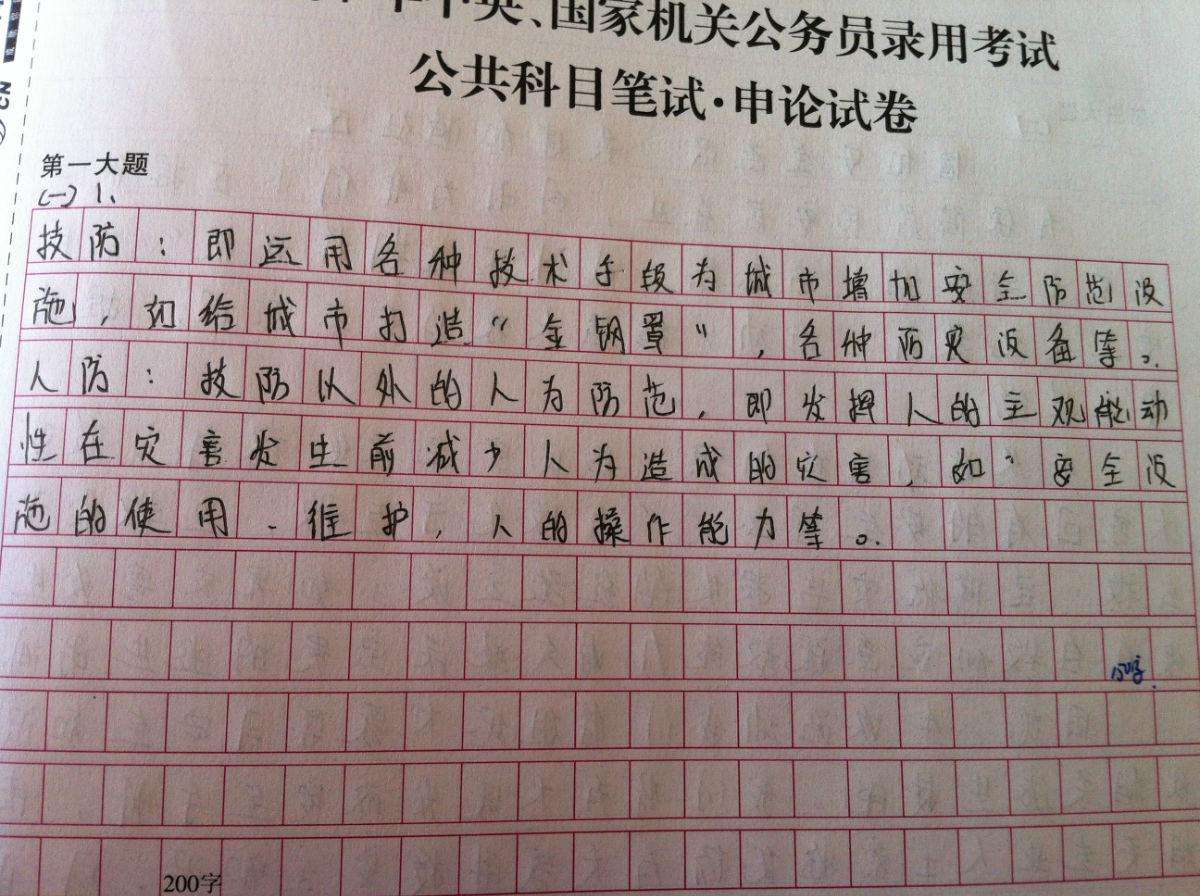 中央、国家机关公务员录用考试
公共科目笔试·申论试卷
第一大题
(一)1、
技防：即运用各种技术手段为城市增加安全防范设
施，如给城市打造“金钢罩”，各种防灾设备等。
人防：技防以外的人为防范，即发挥人的主观能动
性在灾害发生前减少人为造成的灾害，如：安全设
施的使用、维护，人的操作能力等。
150字
200字
CN